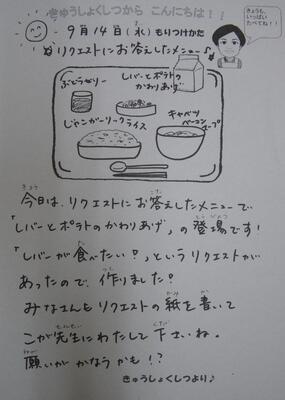 きゅうしょくしつから こんにちは！！
9月14日(水) もりつけかた
リクエストにお答えしたメニュー♪
きょうも、
いっぱい
たべてね！！
ぶどうゼリー
レバーとポテトの
かわりあげ
じゃンガーリックライス
キャベツ
ベーコン
スープ
今日は、リクエストにお答えしたメニューで
「レバーとポテトのかわりあげ」の登場です！
「レバーが食べたい？」というリクエストが
あったので、作りました！
みなさんもリクエストの紙を書いて
こが先生にわたして下さいね。
願いがかなうかも！？
きゅうしょくしつより♪